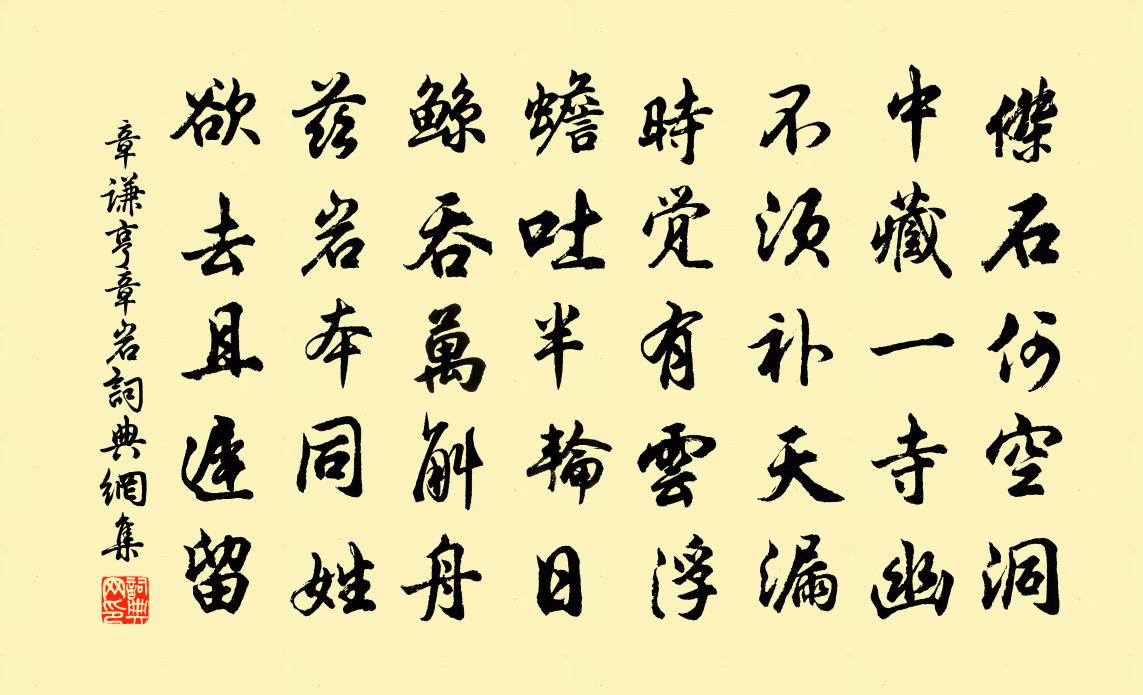 傑石何空洞
中藏一寺幽
不須补天漏
時觉有雲浮
蟾吐半輪日
鯨吞萬斛舟
兹岩本同姓
欲去且遲留
章谦亨章岩詞典網集
詞典网印